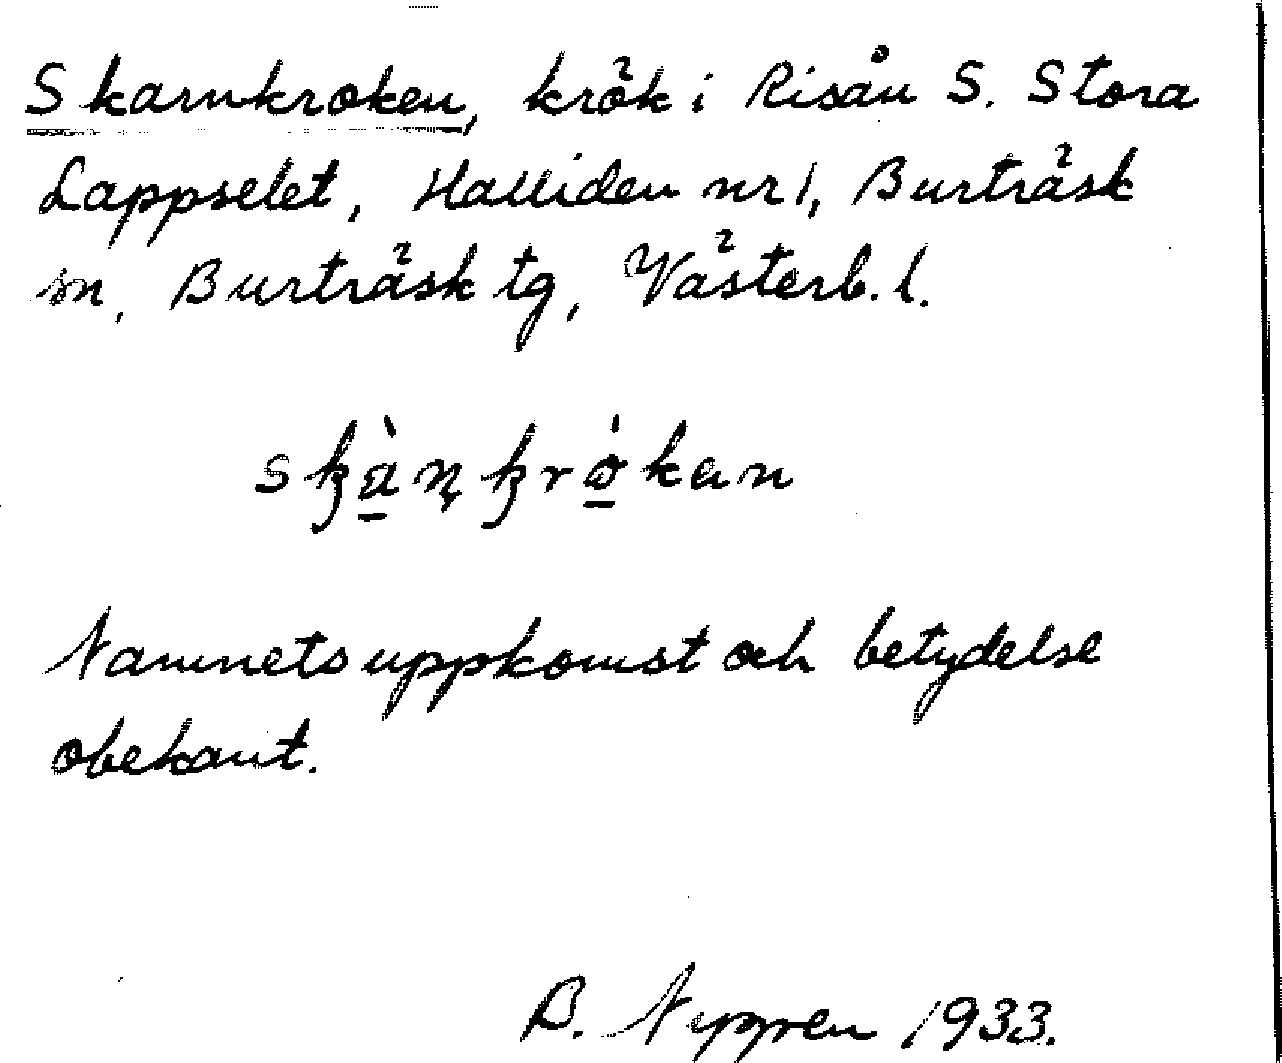 Skarnkroken, krök i Risån S. Stora
Lappselet, Halliden nr 1, Burträsk
sn, Burträsk tg, Västerb. l.
Namnets uppkomst och betydelse
obekant.
B. Nygren 1933.